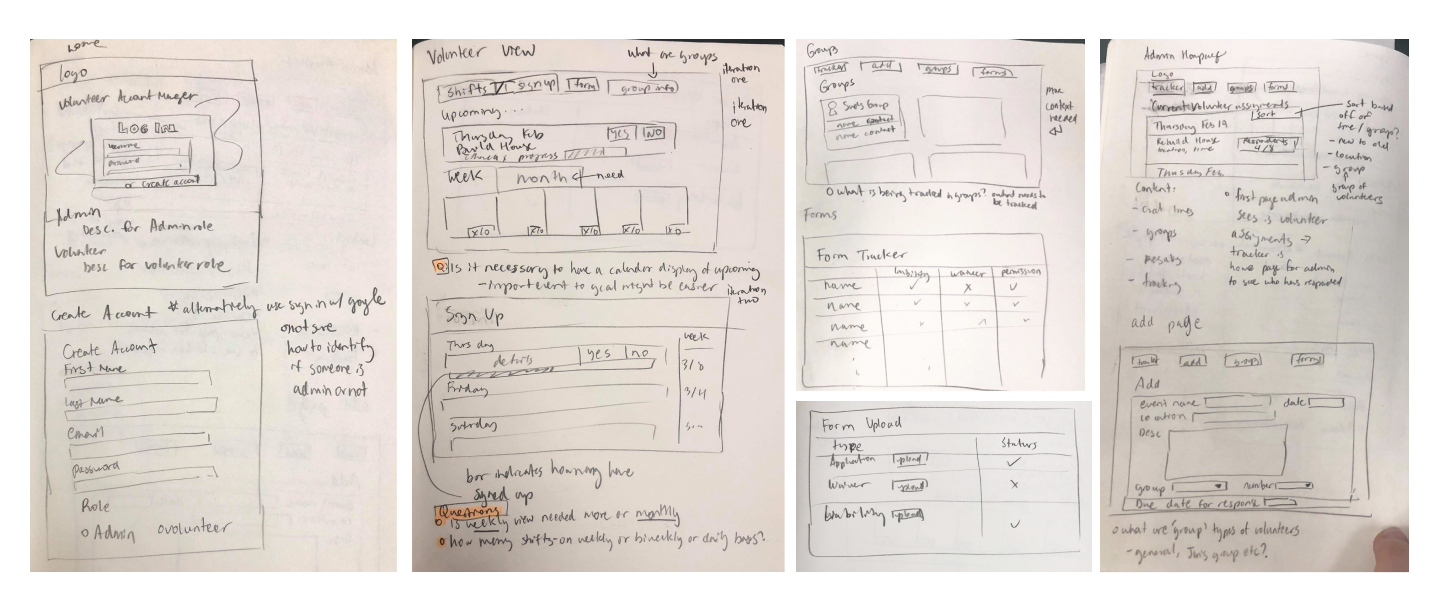 Home
Logo
Volunteer Account Manager
LOG IN
username
password
or create account
Admin
Desc. for Admin role
Volunteer
Desc for volunteer role
Create Account * alternatively use sign in w/ google
o not sure
how to identify
if someone is
admin or not
Create Account
First Name
Last Name
email
Password
Role
o Admin o volunteer
Volunteer View
what are groups
iteration
one
shifts
signup
form
group info
iteration
one
upcoming...
Thursday Feb
yes
no
Build House
progress
week
month
need
x/o
x/o
x/o
x/o
x/o
Q: Is it necessary to have a calendar display of upcoming
- import event to gcal might be easier
iteration
two
Sign Up
week
Thursday
details
yes
no
3/
Friday
3/4
Saturday
bar indicates how many have
signed up
Questions
o is weekly view needed more or monthly
o how many shifts - on weekly or biweekly or daily basis?
Groups
trackers
add
groups
forms
Groups
Group
name contact
name contact
more
context
needed
o what is being tracked in groups? o what needs to
be tracked
Forms
Form Tracker
liability
waiver
permission
name ✓ x ✓
name ✓ ✓ ✓
name
name
Form Upload
type
Status
Application upload ✓
Waiver upload x
liability upload ✓
Admin Homepage
Logo
tracker
add
groups
forms
Current Volunteer assignments
sort
Thursday Feb 19
Rebuild House
location, time
respondents
4/8
Thursday Feb.
sort based
off of
time/group?
- new to old
- location
- group
group of
volunteers
Content:
- groups
- tracking
o first page admin
sees is volunteer
assignments →
tracker is
home page for admin
to see who has responded
add page
add
groups
forms
Add
event name
date
location
Desc
group
number
Due date for response
o what are 'group' types of volunteers
- general, group etc?